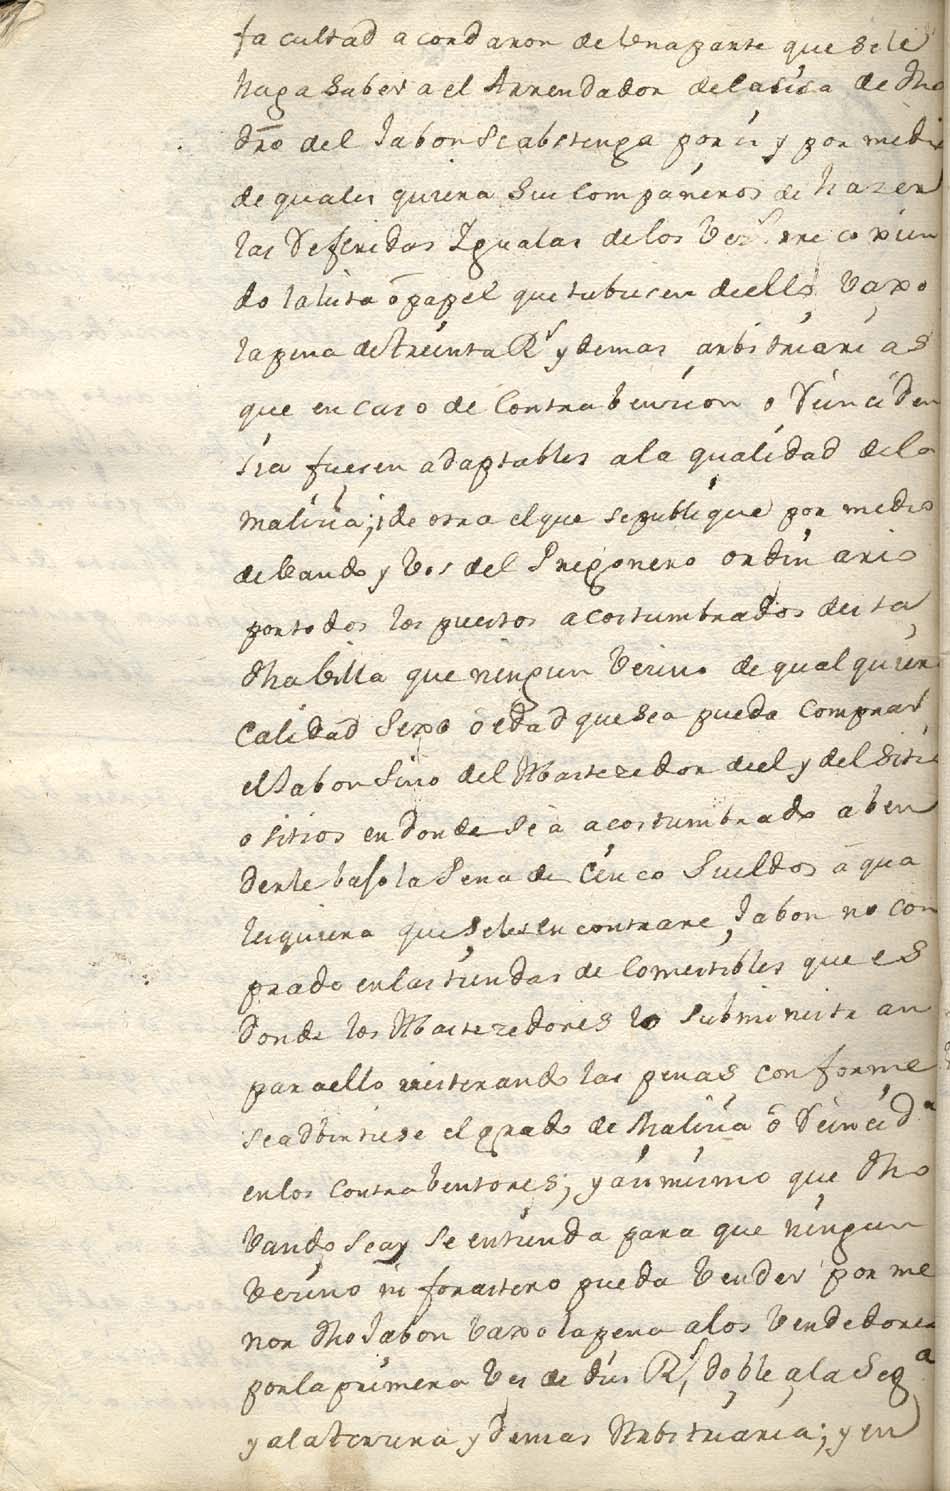 facultad acordaron de una parte que sele
haga saber a el Arrendador dela sisa de dho
dro del Jabon Se abstenga por si y por medio
de quales quiera Sus Compañeros de hazer
las Referidas Ygualas delos Vez.s recoxien
do la lista ò papel que tubiesen de ello vaxo
la pena de treinta R.s y demas arbitrarias
que en caso de Contrabension o Reinciden
sia fuesen adaptables a la qualidad dela
malisia; i de otra el que se publique por medio
de bando y Vos del Pregonero ordinario
por todos los puestos acostumbrados de esta
dha Villa que ningun Vezino de qualquiera
Calidad Sexo o edad que sea pueda comprar
el Jabon Sino del Abastezedor de el y del sitio
o sitios en donde Se à acostumbrado a ben
derle bajo la Pena de Cinco Sueldos à qua
lesquiera que Seles encontrare Jabon no com
prado en las tiendas de Comestibles que es
donde los Abastezedores lo subministran
para ello reiterando las penas conforme
se adbirtiese el grado de Malisia ò Reincid.a
en los contrabentores; y asimismo que dho
vando sea y se entienda para que ningun
Vezino ni forastero pueda Vender por me
nor dho Jabon vaxo la pena a los Vendedores
por la primera Ves de dies R.s, doble a la Seg.a
y a la Tersera y demas Arbitraria; y en